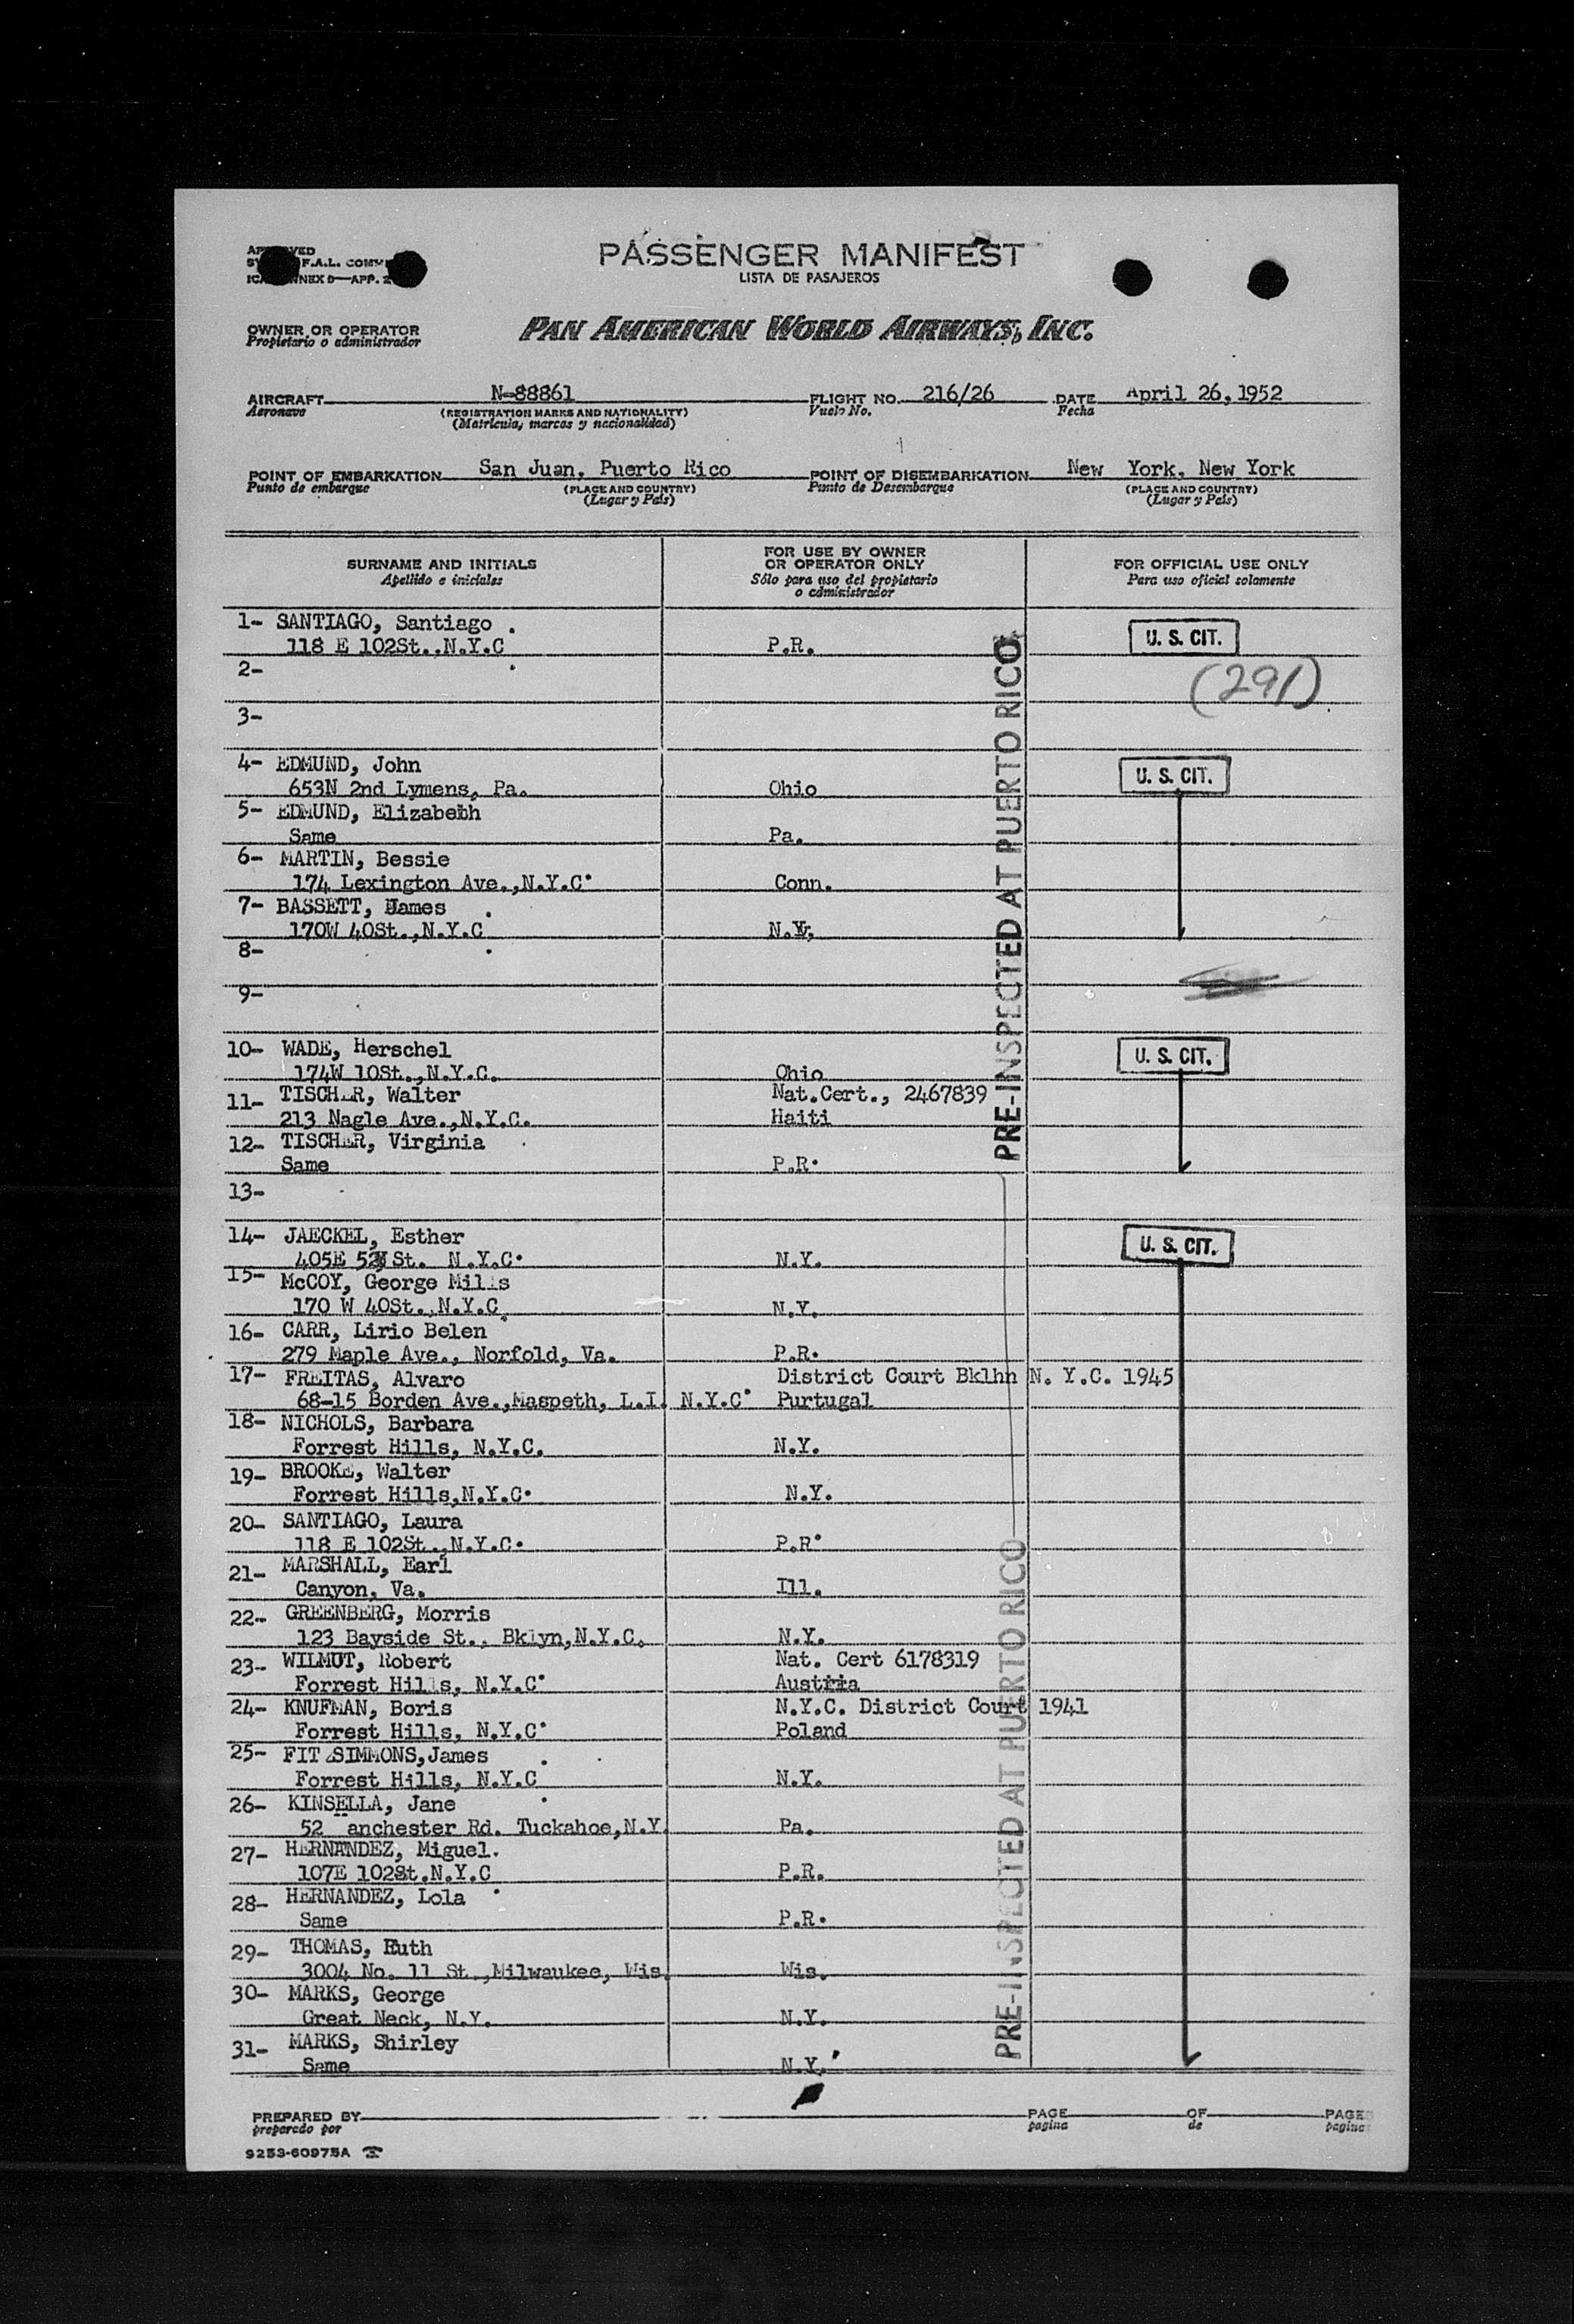 PASSENGER MANIFEST
LISTA DE PASAJEROS
F.A.L.
APP. 2
OWNER OR OPERATOR
Propietario o administrador
PAN AMERICAN WORLD AIRWAYS, INC.
AIRCRAFT N-88861 FLIGHT NO. 216/26 DATE April 26, 1952
Aeronave (REGISTRATION MARKS AND NATIONALITY) Vuelo No. Fecha
(Matrícula, marcas y nacionalidad)
POINT OF EMBARKATION San Juan, Puerto Rico POINT OF DISEMBARKATION New York, New York
Punto de embarque (PLACE AND COUNTRY) Punto de Desembarque (PLACE AND COUNTRY)
(Lugar y País) (Lugar y País)
SURNAME AND INITIALS
Apellido e iniciales
FOR USE BY OWNER
OR OPERATOR ONLY
Sólo para uso del propietario
o administrador
FOR OFFICIAL USE ONLY
Para uso oficial solamente
1- SANTIAGO, Santiago
118 E 102St., N.Y.C P.R. U. S. CIT.
2- (291)
3-
4- EDMUND, John U. S. CIT.
653N 2nd Lymens, Pa. Ohio
5- EDMUND, Elizabeth
Same Pa.
6- MARTIN, Bessie
174 Lexington Ave.,N.Y.C. Conn.
7- BASSETT, James
170W 40St.,N.Y.C N.Y.
8-
9-
10- WADE, Herschel U. S. CIT.
174W 10St.,N.Y.C. Ohio
11- TISCHER, Walter Nat.Cert., 2467839
213 Nagle Ave.,N.Y.C. Haiti
12- TISCHER, Virginia
Same P.R.
13-
14- JAECKEL, Esther U. S. CIT.
405E St. N.Y.C. N.Y.
15- McCOY, George Mills
170 W 40St.,N.Y.C N.Y.
16- CARR, Lirio Belen
279 Maple Ave., Norfold, Va. P.R.
17- FREITAS, Alvaro District Court Bklhn N. Y.C. 1945
68-15 Borden Ave.,Maspeth, L.I. N.Y.C. Purtugal
18- NICHOLS, Barbara
Forrest Hills, N.Y.C. N.Y.
19- BROOKE, Walter
Forrest Hills,N.Y.C. N.Y.
20- SANTIAGO, Laura
118 E 102St.,N.Y.C. P.R.
21- MARSHALL, Earl
Canyon, Va. Ill.
22- GREENBERG, Morris
123 Bayside St., Bklyn,N.Y.C. N.Y.
23- WILMUT, Robert Nat. Cert 6178319
Forrest Hills, N.Y.C. Austria
24- KNUFMAN, Boris N.Y.C. District Court 1941
Forrest Hills, N.Y.C. Poland
25- FITZSIMMONS,James
Forrest Hills, N.Y.C N.Y.
26- KINSELLA, Jane
52 anchester Rd. Tuckahoe,N.Y. Pa.
27- HERNANDEZ, Miguel.
107E 102St.N.Y.C P.R.
28- HERNANDEZ, Lola
Same P.R.
29- THOMAS, Ruth
3004 No. 11 St.,Milwaukee, Wis. Wis.
30- MARKS, George
Great Neck, N.Y. N.Y.
31- MARKS, Shirley
Same N.Y.
PRE-INSPECTED AT PUERTO RICO
PRE-INSPECTED AT PUERTO RICO
PREPARED BY PAGE OF PAGES
preparado por pagina de paginas
9253-60975A